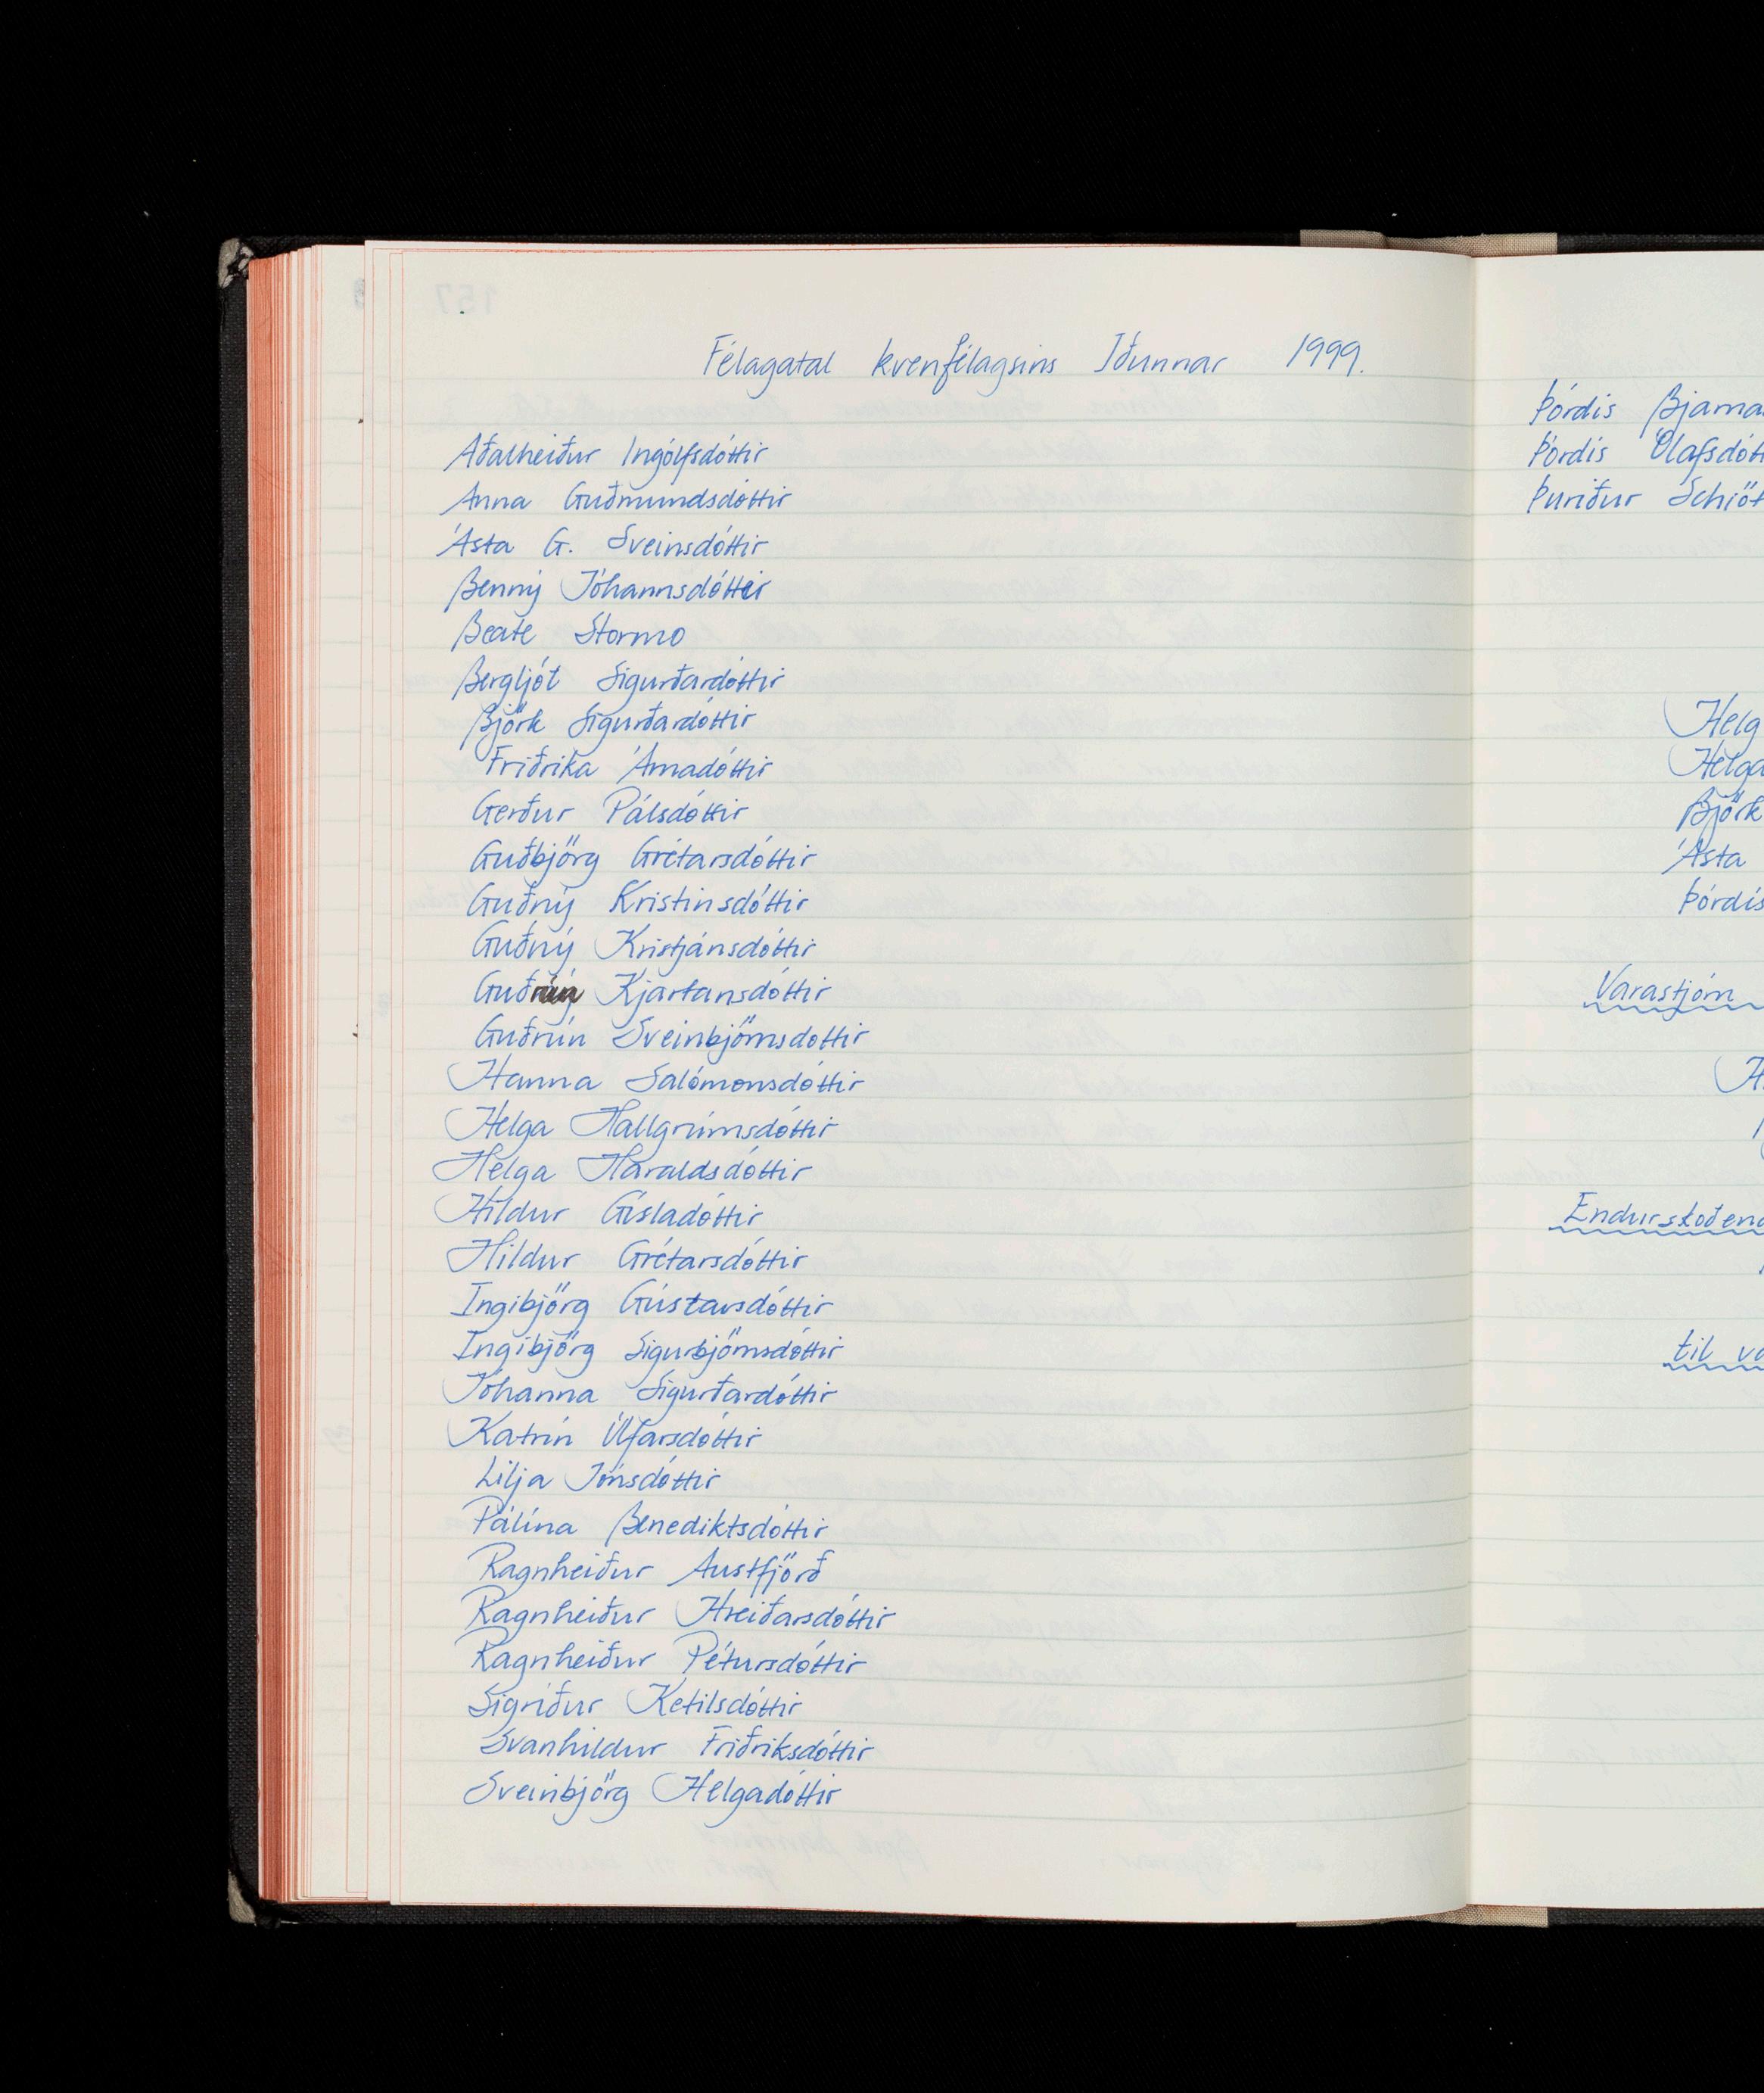 Félagatal kvenfélagsins Iðunnar 1999.
Aðalheiður Ingólfsdóttir
Anna Guðmundsdóttir
Ásta G. Sveinsdóttir
Benný Jóhannsdóttir
Beate Stormo
Bergljót Sigurðardóttir
Björk Sigurðardóttir
Friðrika Árnadóttir
Gerður Pálsdóttir
Guðbjörg Grétarsdóttir
Guðný Kristinsdóttir
Guðný Kristjánsdóttir
Guðrún Kjartansdóttir
Guðrún Sveinbjörnsdottir
Hanna Salómonsdóttir
Helga Hallgrímsdóttir
Helga Haraldsdóttir
Hildur Gísladóttir
Hildur Grétarsdóttir
Ingibjörg Gústavsdóttir
Ingibjörg Sigurbjörnsdóttir
Jóhanna Sigurðardóttir
Katrín Úlfarsdóttir
Lilja Jónsdóttir
Pálína Benediktsdóttir
Ragnheiður Austfjörð
Ragnheiður Hreiðarsdóttir
Ragnheiður Pétursdóttir
Sigríður Ketilsdóttir
Svanhildur Friðriksdóttir
Sveinbjörg Helgadóttir
Þórdís Bjarna
Þórdís Ólafsdótt
Þuríður Schiöt
Helg
Helga
Björk
Ásta
Þórdís
Varastjórn
H
Endurskoðend
til va